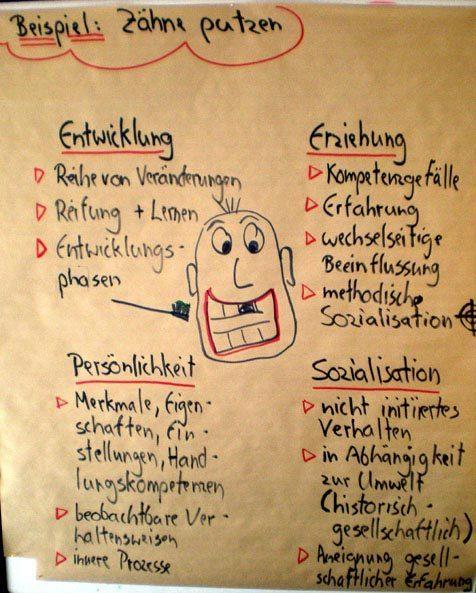 Beispiel: Zähne putzen
Entwicklung
Reihe von Veränderungen
Reifung + Lernen
Entwicklungs-
phasen
Erziehung
Kompetenzgefälle
Erfahrung
wechselseitige
Beeinflussung
methodische
Sozialisation
Persönlichkeit
Merkmale, Eigen-
schaften, Ein-
stellungen, Hand-
lungskompetenzen
beobachtbare Ver-
haltensweisen
innere Prozesse
Sozialisation
nicht initiiertes
Verhalten
in Abhängigkeit
zur Umwelt
(historisch-
gesellschaftlich)
Aneignung gesell-
schaftlicher Erfahrung